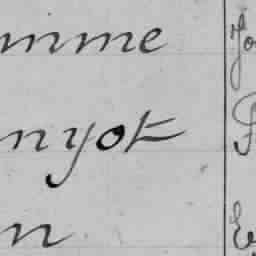 mme
nyot
n